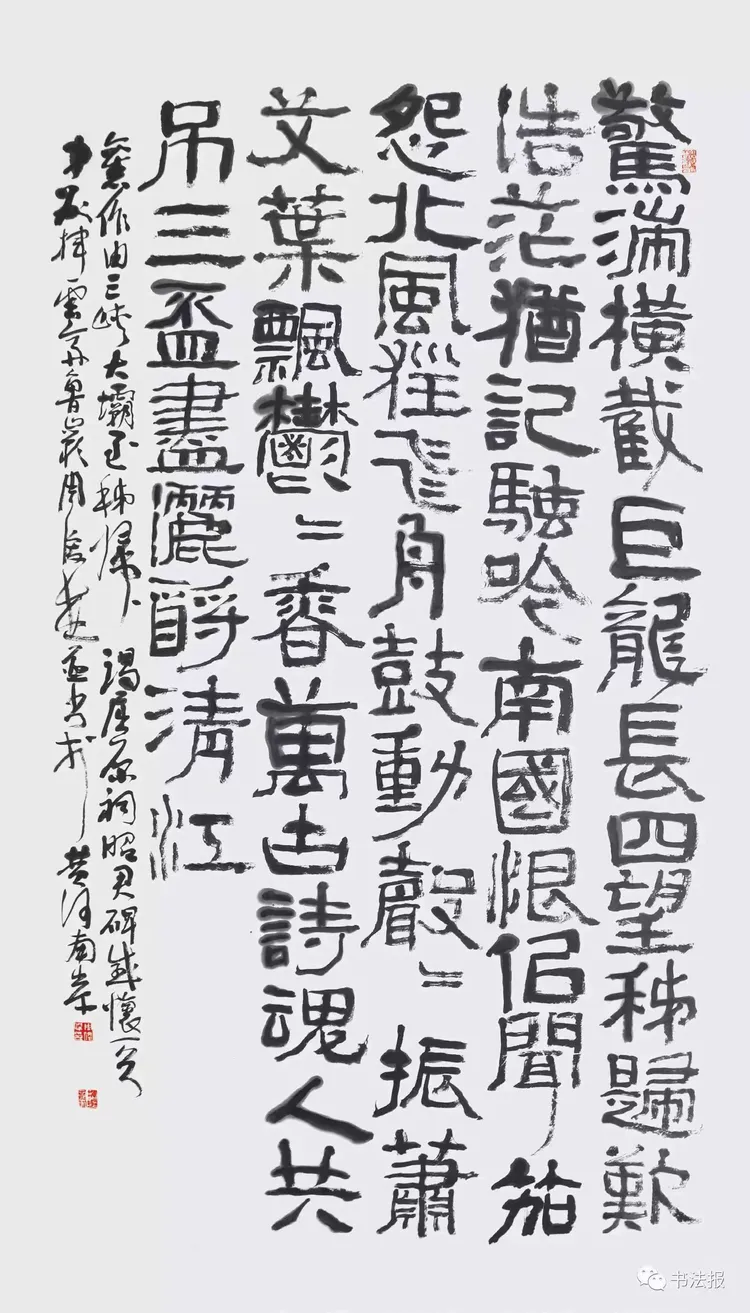 驚湍橫截巨龍長四望秭歸歎
浩茫猶記騷吟南國恨佀聞笳
怨北風狂飛舟鼓動聲〻振蕭
艾葉飄鬱〻香萬古詩魂人共
吊三盃盡灑酹清江
舊作由三峽大壩至秭歸謁屈原祠昭君碑感懷一闋
周俊杰并書於黃河南岸
书法报